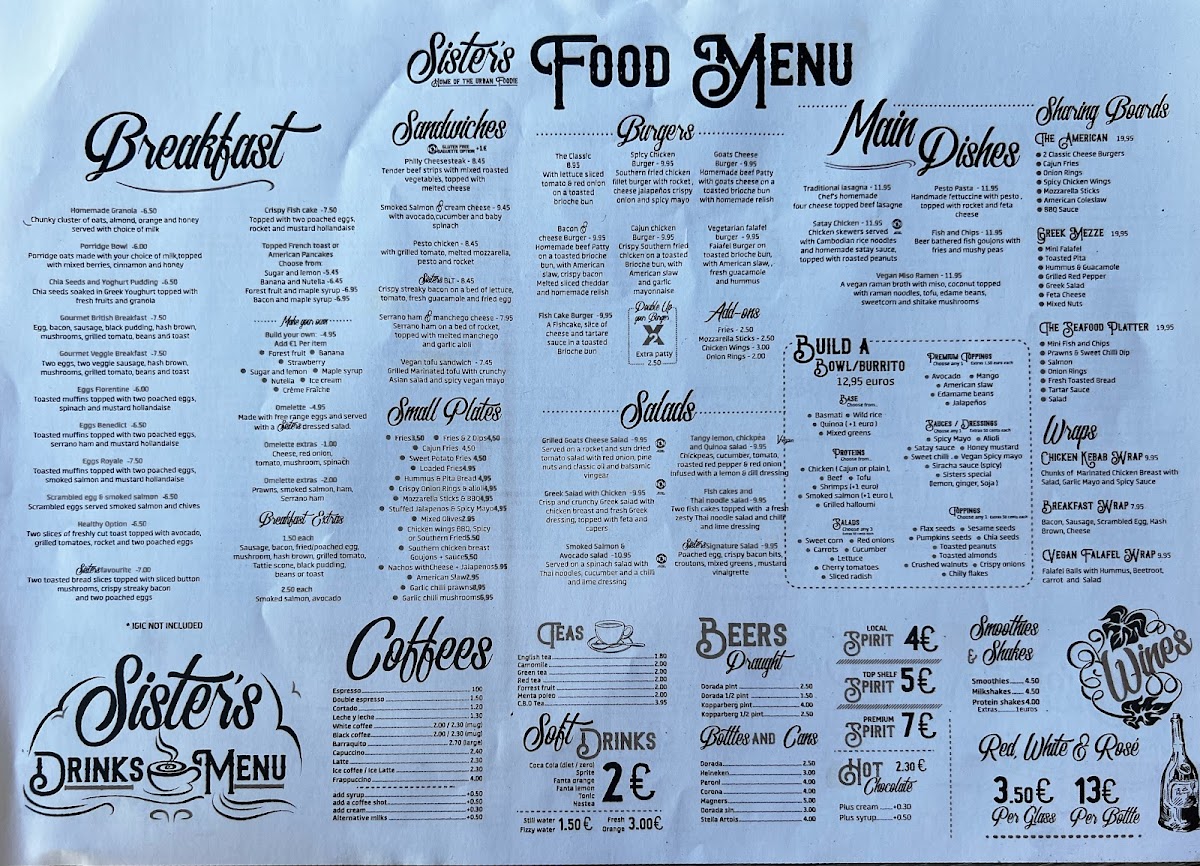 Sister's
Home of the Urban Foodie
Food Menu
Breakfast
Homemade Granola -6.50
Chunky cluster of oats, almond, orange and honey
served with choice of milk
Porridge Bowl -6.00
Porridge oats made with your choice of milk,topped
with mixed berries, cinnamon and honey
Chia Seeds and Yoghurt Pudding -6.50
Chia seeds soaked in Greek Youghurt topped with
fresh fruits and granola
Gourmet British Breakfast -7.50
Egg, bacon, sausage, black pudding, hash brown,
mushrooms, grilled tomato, beans and toast
Gourmet Veggie Breakfast -7.50
Two eggs, two veggie sausage, hash brown,
mushrooms, grilled tomato, beans and toast
Eggs Florentine -6.00
Toasted muffins topped with two poached eggs,
spinach and mustard hollandaise
Eggs Benedict -6.50
Toasted muffins topped with two poached eggs,
serrano ham and mustard hollandaise
Eggs Royale -7.50
Toasted muffins topped with two poached eggs,
smoked salmon and mustard hollandaise
Scrambled egg & smoked salmon -6.50
Scrambled eggs served smoked salmon and chives
Healthy Option -6.50
Two slices of freshly cut toast topped with avocado,
grilled tomatoes, rocket and two poached eggs
Sister's favourite -7.00
Two toasted bread slices topped with sliced button
mushrooms, crispy streaky bacon
and two poached eggs
* IGIC NOT INCLUDED
Crispy Fish cake -7.50
Topped with two poached eggs,
rocket and mustard hollandaise
Topped French toast or
American Pancakes
Choose from:
Sugar and lemon -5.45
Banana and Nutella -6.45
Forest fruit and maple syrup -6.95
Bacon and maple syrup -6.95
Make your own
Build your own: -4.95
Add €1 Per item
● Forest fruit ● Banana
● Strawberry
● Sugar and lemon ● Maple syrup
● Nutella ● Ice cream
● Crème Fraîche
Omelette -4.95
Made with free range eggs and served
with a Sister's dressed salad.
Omelette extras -1.00
Cheese, red onion,
tomato, mushroom, spinach
Omelette extras -2.00
Prawns, smoked salmon, ham,
Serrano ham
Breakfast Extras
1.50 each
Sausage, bacon, fried/poached egg,
mushroom, hash brown, grilled tomato,
Tattie scone, black pudding,
beans or toast
2.50 each
Smoked salmon, avocado
Sandwiches
GLUTEN FREE
BAGUETTE OPTION +1€
Philly Cheesesteak - 8.45
Tender beef strips with mixed roasted
vegetables, topped with
melted cheese
Smoked Salmon & cream cheese - 9.45
with avocado,cucumber and baby
spinach
Pesto chicken - 8.45
with grilled tomato, melted mozzarella,
pesto and rocket
Sister's BLT - 8.45
Crispy streaky bacon on a bed of lettuce,
tomato, fresh guacamole and fried egg
Serrano ham & manchego cheese - 7.95
Serrano ham on a bed of rocket,
topped with melted manchego
and garlic aioli
Vegan tofu sandwich - 7.45
Grilled Marinated tofu With crunchy
Asian salad and spicy vegan mayo
Small Plates
● Fries3,50 ● Fries & 2 Dips4,50
● Cajun Fries 4,50
● Sweet Potato Fries 4,50
● Loaded Fries4,95
● Hummus & Pita Bread 4,95
● Crispy Onion Rings & alioli4,95
● Mozzarella Sticks & BBQ4,95
● Stuffed Jalapeños & Spicy Mayo4,95
● Mixed Olives2,95
● Chicken wings BBQ, Spicy
or Southern Fried5,50
● Southern chicken breast
Goujons + Sauce5,50
● Nachos withCheese + Jalapeños5,95
● American Slaw2,95
● Garlic chilli prawns6,95
● Garlic chilli mushrooms6,95
Burgers
The Classic
8.95
With lettuce sliced
tomato & red onion
on a toasted
brioche bun
Spicy Chicken
Burger - 9.95
Southern fried chicken
fillet burger with rocket ,
cheese jalapeños crispy
onion and spicy mayo
Goats Cheese
Burger - 9.95
Homemade beef Patty
with goats cheese on a
toasted brioche bun
with homemade relish
Bacon &
cheese Burger - 9.95
Homemade beef Patty
on a toasted brioche
bun, with American
slaw, crispy bacon
Melted sliced cheddar
and homemade relish
Cajun chicken
burger - 9.95
Crispy Southern fried
chicken on a toasted
Brioche bun, with
American slaw
and garlic
mayonnaise
Vegetarian falafel
burger - 9.95
Falafel Burger on
toasted brioche bun,
with American slaw, ,
fresh guacamole
and hummus
Fish Cake Burger - 9,95
A Fishcake, slice of
cheese and tartare
sauce in a toasted
Brioche bun
Double Up
your Burgers
X2
Extra patty
2.50
Add-ons
Fries - 2.50
Mozzarella Sticks - 2.50
Chicken Wings - 3.00
Onion Rings - 2.00
Salads
Grilled Goats Cheese Salad - 9.95
Served on a rocket and sun dried
tomato salad with red onion, pine
nuts and classic oil and balsamic
vinegar
Greek Salad with Chicken - 9.95
Crisp and crunchy Greek salad with
chicken breast and fresh Greek
dressing, topped with feta and
capers
Smoked Salmon &
Avocado salad - 10.95
Served on a spinach salad with
Thai noodles, cucumber and a chilli
and lime dressing
Tangy lemon, chickpea
and Quinoa salad - 9.95
Chickpeas, cucumber, tomato,
roasted red pepper & red onion
infused with a lemon & dill dressing
Vegan
Fish cakes and
Thai noodle salad - 9.95
Two fish cakes topped with a fresh
zesty Thai noodle salad and chilli
and lime dressing
Sister's Signature Salad - 9.95
Poached egg, crispy bacon bits,
croutons, mixed greens , mustard
vinaigrette
Main Dishes
Traditional lasagna - 11.95
Chef's homemade
four cheese topped beef lasagne
Satay Chicken - 11.95
Chicken skewers served
with Cambodian rice noodles
and homemade satay sauce,
topped with roasted peanuts
Pesto Pasta - 11.95
Handmade fettuccine with pesto ,
topped with rocket and feta
cheese
Fish and Chips - 11.95
Beer bathered fish goujons with
fries and mushy peas
Vegan Miso Ramen - 11.95
A vegan ramen broth with miso, coconut topped
with raman noodles, tofu, edame beans,
sweetcorn and shitake mushrooms
Build a
Bowl/Burrito
12,95 euros
Base
Choose from..
● Basmati ● Wild rice
● Quinoa (+1 euro )
● Mixed greens
Proteins
Choose from..
● Chicken ( Cajun or plain ),
● Beef ● Tofu
● Shrimps (+1 euro )
● Smoked salmon (+1 euro ),
● Grilled halloumi
Salads
Choose any 3
● Sweet corn ● Red onions
● Carrots ● Cucumber
● Lettuce
● Cherry tomatoes
● Sliced radish
Premium Toppings
Choose any 1 Extras 1,50 euro each
● Avocado ● Mango
● American slaw
● Edamame beans
● Jalapeños
Sauces / Dressings
Choose any 1 Extras 50 cents each
● Spicy Mayo ● Alioli
● Satay sauce ● Honey mustard
● Sweet chilli ● Vegan Spicy mayo
● Siracha sauce (spicy)
● Sisters special
(lemon, ginger, Soja )
Toppings
Choose any 1 Extras 50 cents each
● Flax seeds ● Sesame seeds
● Pumpkins seeds ● Chia seeds
● Toasted peanuts
● Toasted almonds
● Crushed walnuts ● Crispy onions
● Chilly flakes
Sharing Boards
The American 19,95
● 2 Classic Cheese Burgers
● Cajun Fries
● Onion Rings
● Spicy Chicken Wings
● Mozzarella Sticks
● American Coleslaw
● BBQ Sauce
Greek Mezze 19,95
● Mini Falafel
● Toasted Pita
● Hummus & Guacamole
● Grilled Red Pepper
● Greek Salad
● Feta Cheese
● Mixed Nuts
The Seafood Platter 19,95
● Mini Fish and Chips
● Prawns & Sweet Chilli Dip
● Salmon
● Onion Rings
● Fresh Toasted Bread
● Tartar Sauce
● Salad
Wraps
Chicken Kebab Wrap 9.95
Chunks of Marinated Chicken Breast with
Salad, Garlic Mayo and Spicy Sauce
Breakfast Wrap 7.95
Bacon, Sausage, Scrambled Egg, Hash
Brown, Cheese
Vegan Falafel Wrap 9.95
Falafel Balls with Hummus, Beetroot,
carrot and Salad
Sister's
Drinks Menu
Coffees
Espresso 1.00
Double espresso 1.50
Cortado 1.20
Leche y leche 1.30
White coffee 2.00 / 2.30 (mug)
Black coffee 2.00 / 2.30 (mug)
Barraquito 2.70 (large)
Capuccino 2.40
Latte 2.30
Ice coffee / Ice Latte 2.30
Frappuccino 4.00
add syrup +0.50
add a coffee shot +0.50
add cream +0.30
Alternative milks +0.50
Teas
English tea 1.80
Camomile 2.00
Green tea 2.00
Red tea 2.00
Forrest fruit 2.00
Menta poleo 2.00
C.B.D Tea 3.95
Soft Drinks
Coca Cola (diet / zero)
Sprite
Fanta orange
Fanta lemon
Tonic
Nestea
2€
Still water
Fizzy water 1.50€
Fresh
Orange 3.00€
Beers
Draught
Dorada pint 2.50
Dorada 1/2 pint 1.50
Kopparberg pint 4.00
Kopparberg 1/2 pint 2.50
Bottles and Cans
Dorada 2.50
Heineken 3.00
Peroni 4.00
Corona 4.00
Magners 5.00
Dorada sin 3.00
Stella Artois 4.00
Local
Spirit 4€
Top Shelf
Spirit 5€
Premium
Spirit 7€
Hot 2.30€
Chocolate
Plus cream +0.30
Plus syrup +0.50
Smoothies
& Shakes
Smoothies 4.50
Milkshakes 4.50
Protein shakes4.00
Extras 1euros
Wines
Red, White & Rosé
3.50€ 13€
Per Glass Per Bottle